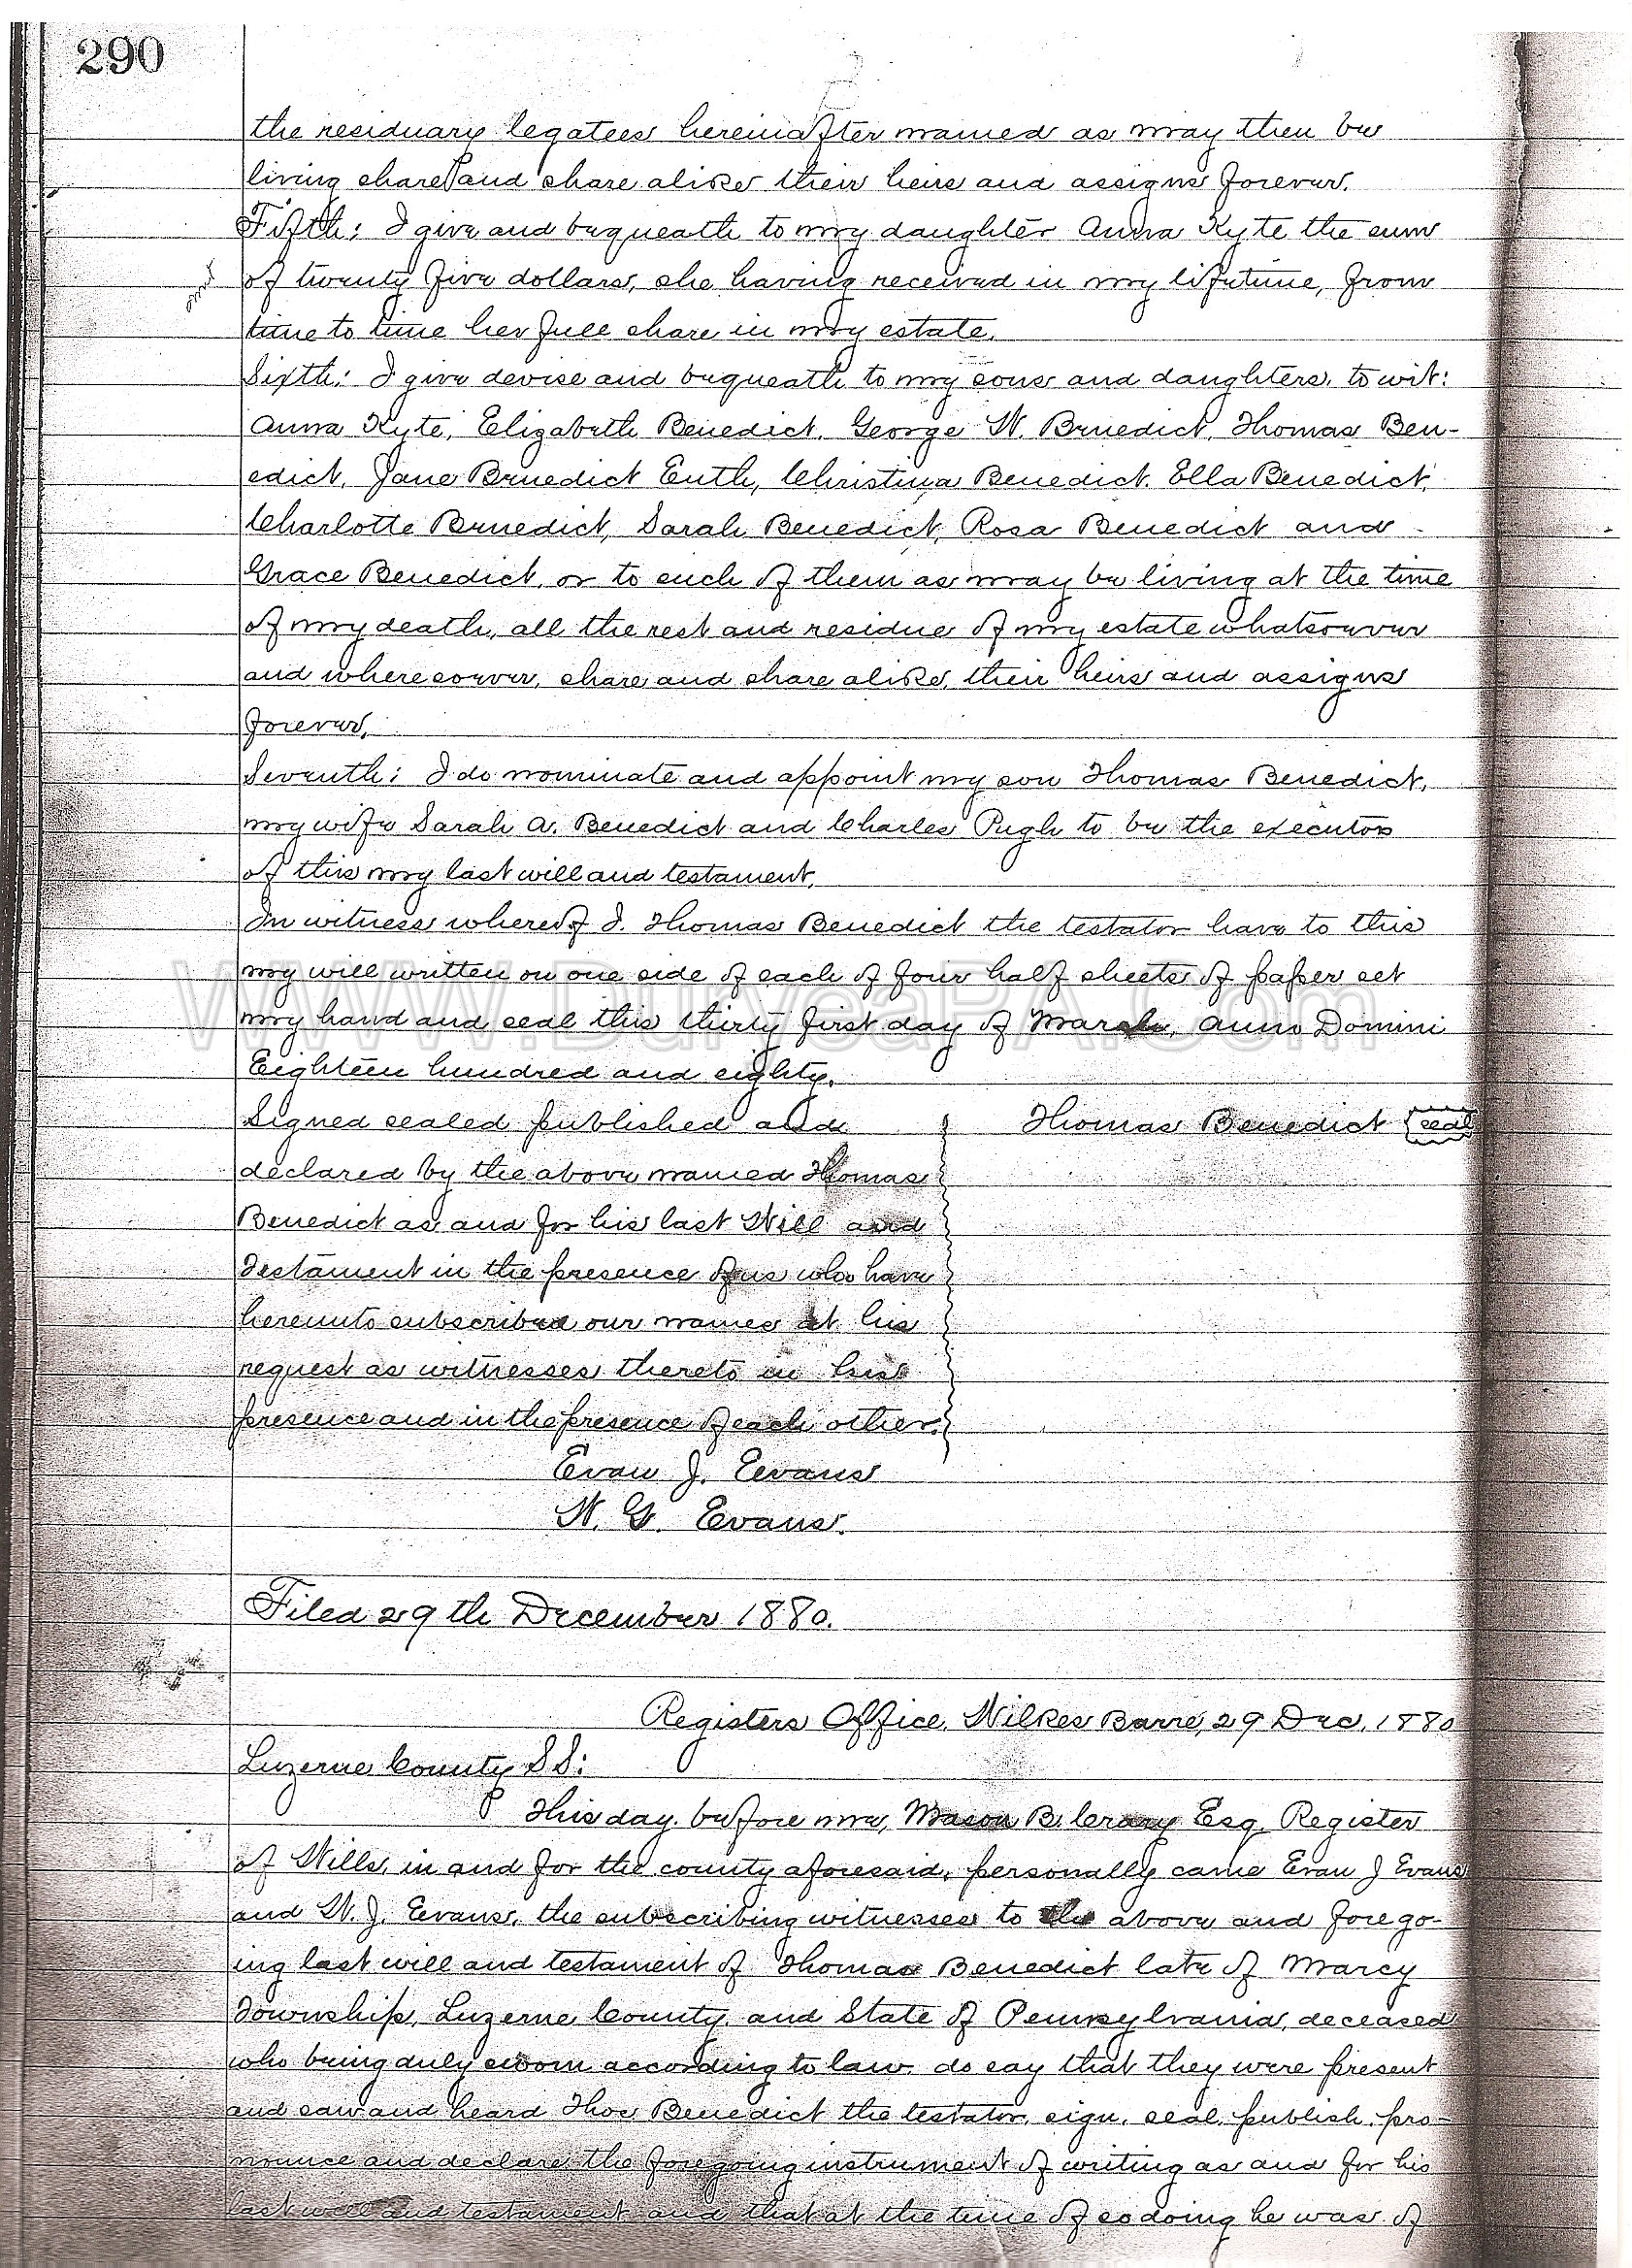 290
the residuary legatees hereinafter named as may then be
living share and share alike their heirs and assigns forever.
Fifth: I give and bequeath to my daughter Anna Kyte the sum
of twenty five dollars, she having received in my lifetime, from
time to time her full share in my estate.
Sixth: I give devise and bequeath to my sons and daughters, to wit:
Anna Kyte, Elizabeth Benedict, George W. Benedict, Thomas Ben-
edict, Jane Benedict Euth, Christina Benedict, Ella Benedict,
Charlotte Benedict, Sarah Benedict, Rosa Benedict and
Grace Benedict, or to such of them as may be living at the time
of my death, all the rest and residue of my estate whatsoever
and wheresoever, share and share alike, their heirs and assigns
forever.
Seventh: I do nominate and appoint my son Thomas Benedict,
my wife Sarah A. Benedict and Charles Pugh to be the executors
of this my last will and testament.
In witness whereof I. Thomas Benedict the testator have to this
my will written on one side of each of four half sheets of paper set
my hand and seal this thirty first day of March, Anno Domini
WWW.DuryeaPA.Com
Eighteen hundred and eighty.
Signed sealed published and Thomas Benedict seal
declared by the above named Thomas
Benedict as and for his last Will and
Testament in the presence of us who have
hereunto subscribed our names at his
request as witnesses thereto in his
presence and in the presence of each other.
Evan J. Evans
W. G. Evans.
Filed 29th December 1880.
Registers Office, Wilkes Barre, 29 Dec, 1880
Luzerne County SS:
This day before me, Mason B. Crary Esq. Register
of Wills, in and for the county aforesaid, personally came Evan J Evans
and W. J. Evans, the subscribing witnesses to the above and forego-
ing last will and testament of Thomas Benedict late of Marcy
Township, Luzerne County and State of Pennsylvania, deceased
who being duly sworn according to law, do say that they were present
and saw and heard Thos Benedict the testator, sign, seal, publish, pro-
nounce and declare the foregoing instrument of writing as and for his
last will and testament and that at the time of so doing he was of